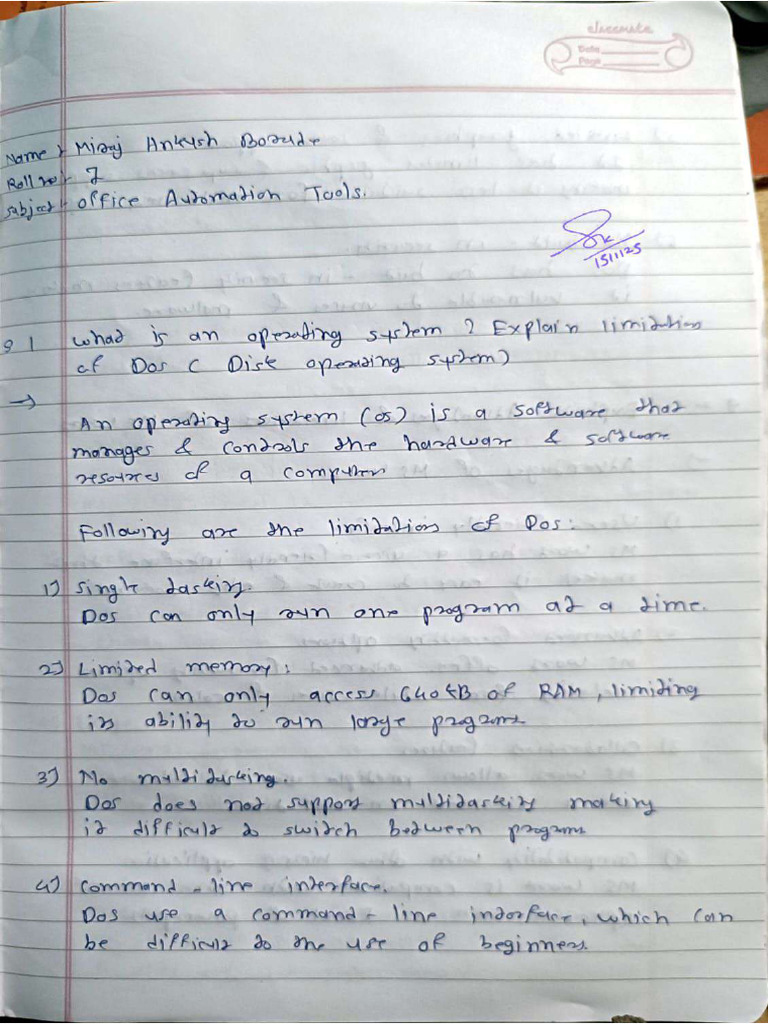 classmate
Date
Page
Name :- Miraj Ankush Borude
Roll no :- 7
Subject :- Office Automation Tools.
15/1/25
Q 1 What is an operating system ? Explain limitation
of Dos ( Disk operating system)
→
An operating system (os) is a software that
manages & controls the hardware & software
resources of a computer
Following are the limitations of Dos :
1) Single tasking.
Dos can only run one program at a time.
2) Limited memory :
Dos can only access 640 KB of RAM , limiting
its ability to run large programs
3) No multitasking.
Dos does not support multitasking making
it difficult to switch between programs
4) Command - line interface.
Dos use a command - line interface, which can
be difficult to the use of beginners.